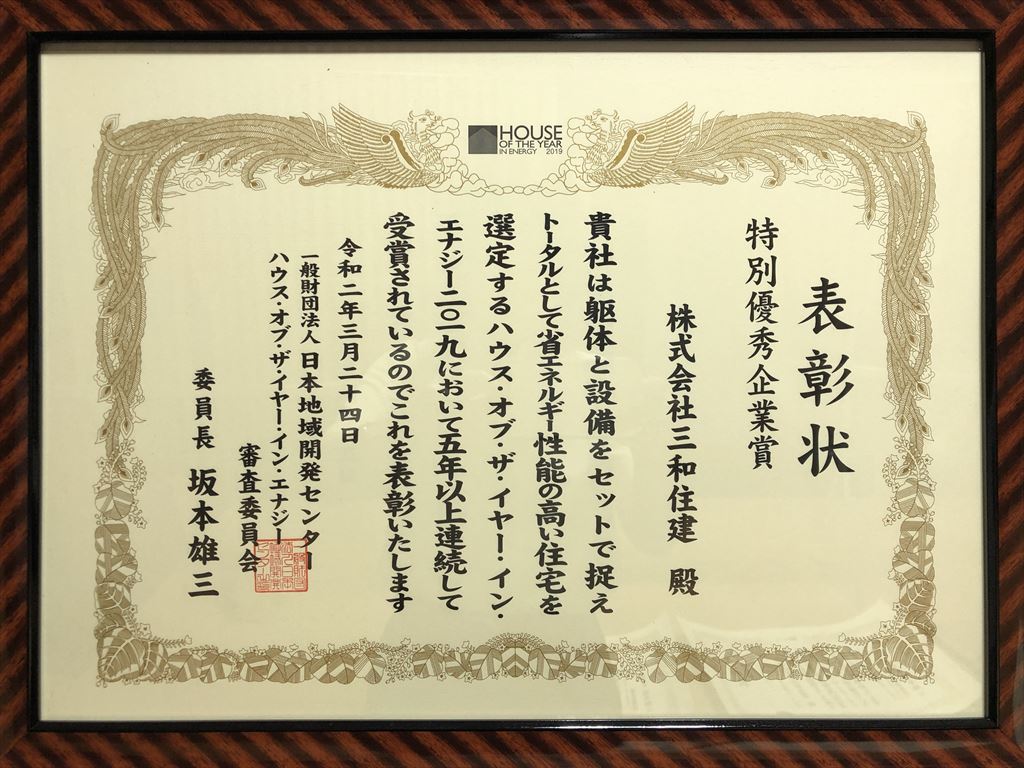 HOUSE
OF THE YEAR
IN ENERGY 2019
表彰状
特別優秀企業賞
株式会社三和住建 殿
貴社は躯体と設備をセットで捉え
トータルとして省エネルギー性能の高い住宅を
選定するハウス・オブ・ザ・イヤー・イン・
エナジー二〇一九において五年以上連続して
受賞されているのでこれを表彰いたします
令和二年三月二十四日
一般財団法人 日本地域開発センター
ハウス・オブ・ザ・イヤー・イン・エナジー
審査委員会
委員長 坂本雄三